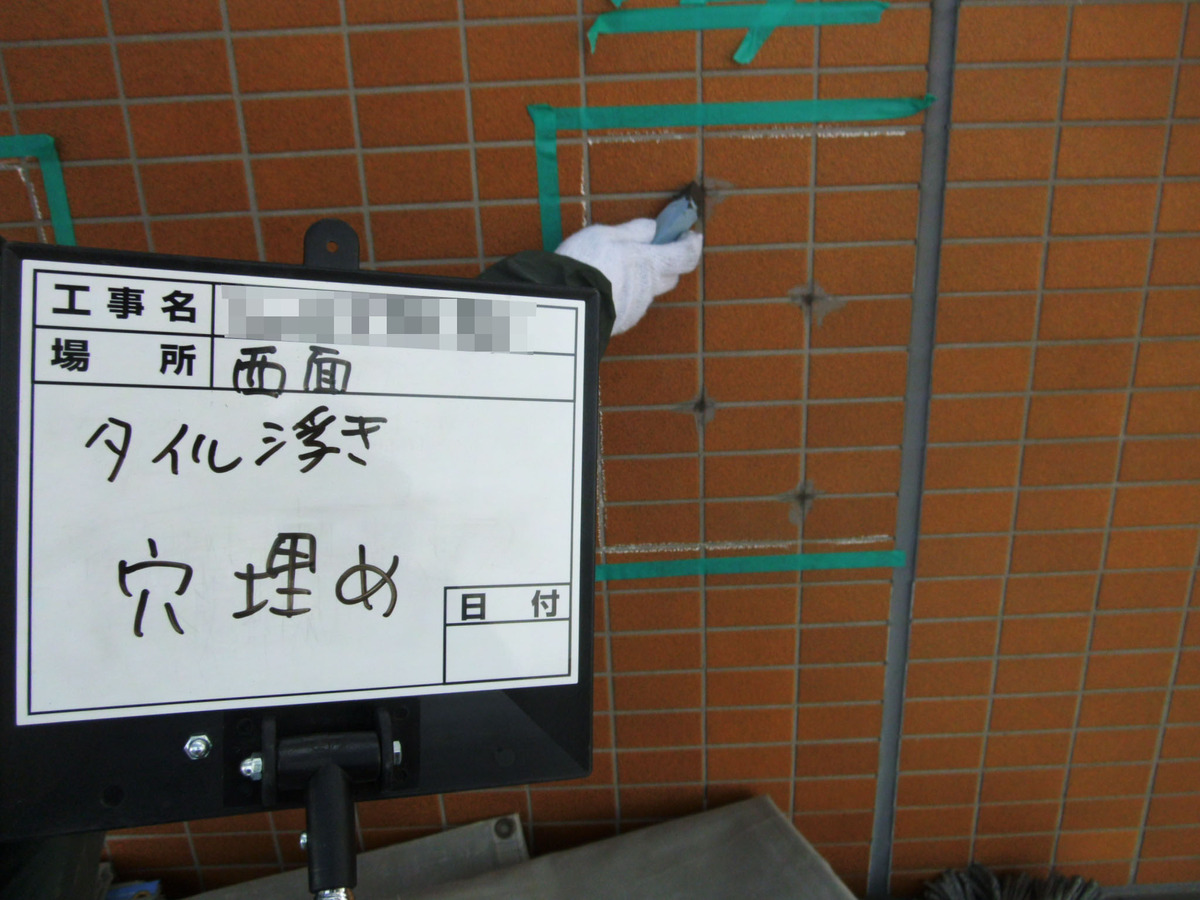 工事名
場所 西面
タイル浮き
穴埋め
日付